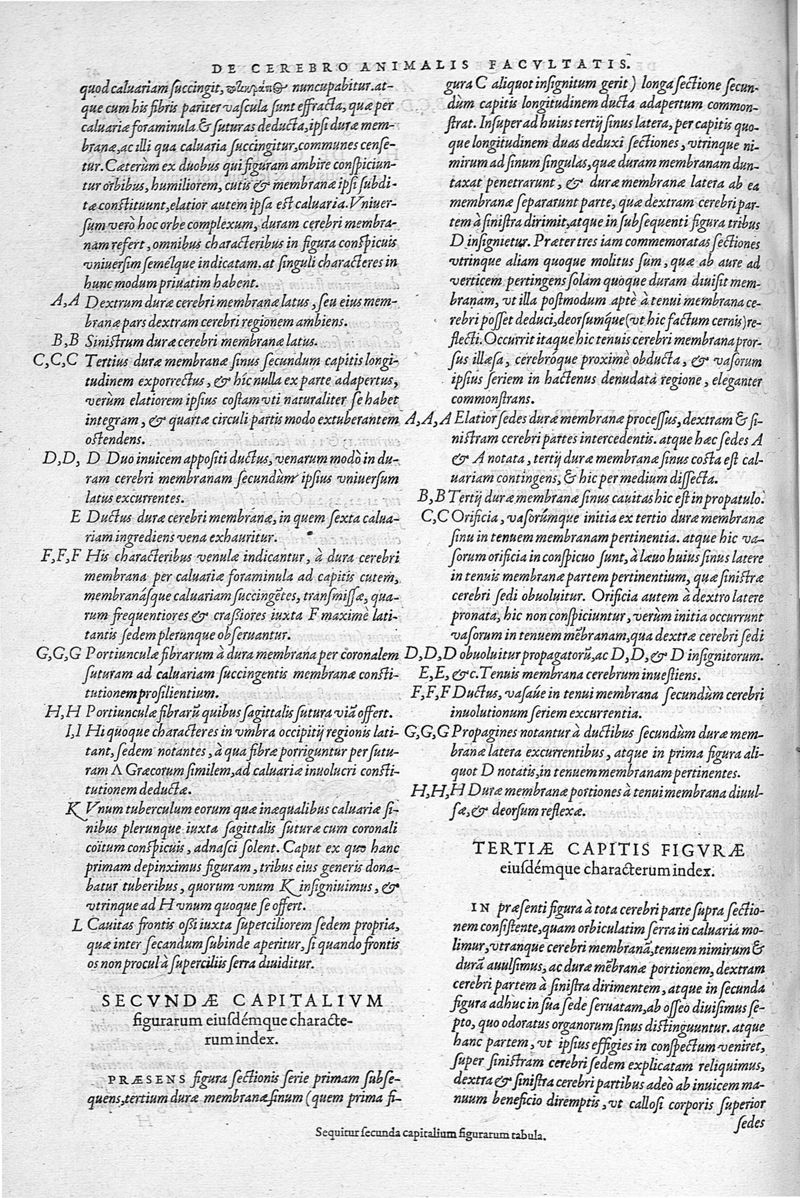 DE CEREBRO ANIMALIS FACVLTATIS.
quod caluariam succingit, nuncupabitur. at-
que cum his fibris pariter vascula sunt effracta, quæ per
caluariæ foraminula & suturas deducta, ipsi duræ mem-
branæ, ac illi qua caluaria succingitur, communes cense-
tur. Cæterùm ex duobus qui figuram ambire conspiciun-
tur orbibus, humiliorem, cutis & membranæ ipsi subdi-
tæ constituunt, elatior autem ipsa est caluaria. Vniuer-
sum verò hoc orbe complexum, duram cerebri membra-
nam refert, omnibus characteribus in figura conspicuis
vniuersim semélque indicatam. at singuli characteres in
hunc modum priuatim habent.
A, A Dextrum duræ cerebri membranæ latus, seu eius mem-
branæ pars dextram cerebri regionem ambiens.
B, B Sinistrum duræ cerebri membranæ latus.
C, C, C Tertius duræ membranæ sinus secundum capitis longi-
tudinem exporrectus, & hic nulla ex parte adapertus,
verùm elatiorem ipsius costam vti naturaliter se habet
integram, & quartæ circuli partis modo extuberantem
ostendens.
D, D, D Duo inuicem appositi ductus, venarum modò in du-
ram cerebri membranam secundùm ipsius vniuersum
latus excurrentes.
E Ductus duræ cerebri membranæ, in quem sexta calua-
riam ingrediens vena exhauritur.
F, F, F His characteribus venulæ indicantur, à dura cerebri
membrana per caluariæ foraminula ad capitis cutem,
membranásque caluariam succingētes, transmissæ, qua-
rum frequentiores & crassiores iuxta F maximè lati-
tantis sedem plerunque obseruantur.
G, G, G Portiunculæ fibrarum à dura membrana per coronalem
suturam ad caluariam succingentis membranæ consti-
tutionem prosilientium.
H, H Portiunculæ fibrarū quibus sagittalis sutura viā offert.
I, I Hi quoque characteres in vmbra occipitij regionis lati-
tant, sedem notantes, à qua fibræ porriguntur per sutu-
ram Λ Græcorum similem, ad caluariæ inuolucri consti-
tutionem deductæ.
K Vnum tuberculum eorum quæ inæqualibus caluariæ si-
nibus plerunque iuxta sagittalis suturæ cum coronali
coïtum conspicuis, adnasci solent. Caput ex quo hanc
primam depinximus figuram, tribus eius generis dona-
batur tuberibus, quorum vnum K insigniuimus, &
vtrinque ad H vnum quoque se offert.
L Cauitas frontis ossi iuxta superciliorem sedem propria,
quæ inter secandum subinde aperitur, si quando frontis
os non procul à superciliis serra diuiditur.
SECVNDÆ CAPITALIVM
figurarum eiusdémque characte-
rum index.
PRÆSENS figura sectionis serie primam subse-
quens, tertium duræ membranæ sinum (quem prima fi-
gura C aliquot insignitum gerit) longa sectione secun-
dùm capitis longitudinem ducta adapertum common-
strat. Insuper ad huius tertij sinus latera, per capitis quo-
que longitudinem duas deduxi sectiones, vtrinque ni-
mirum ad sinum singulas, quæ duram membranam dun-
taxat penetrarunt, & duræ membranæ latera ab ea
membranæ separarunt parte, quæ dextram cerebri par-
tem à sinistra dirimit, atque in subsequenti figura tribus
D insignietur. Præter tres iam commemoratas sectiones
vtrinque aliam quoque molitus sum, quæ ab aure ad
verticem pertingens solam quoque duram diuisit mem-
branam, vt illa postmodum aptè à tenui membrana ce-
rebri posset deduci, deorsumq́ue (vt hic factum cernis) re-
flecti. Occurrit itaque hic tenuis cerebri membrana pror-
sus illæsa, cerebróque proximè obducta, & vasorum
ipsius seriem in hactenus denudata regione, eleganter
commonstrans.
A, A, A Elatior sedes duræ membranæ processus, dextram & si-
nistram cerebri partes intercedentis. atque hæc sedes A
& A notata, tertij duræ membranæ sinus costa est cal-
uariam contingens, & hic per medium dissecta.
B, B Tertij duræ membranæ sinus cauitas hic est in propatulo.
C, C Orificia, vasorúmque initia ex tertio duræ membranæ
sinu in tenuem membranam pertinentia. atque hic va-
sorum orificia in conspicuo sunt, à læuo huius sinus latere
in tenuis membranæ partem pertinentium, quæ sinistræ
cerebri sedi obuoluitur. Orificia autem à dextro latere
pronata, hic non conspiciuntur, verùm initia occurrunt
vasorum in tenuem mēbranam, qua dextræ cerebri sedi
D, D, D obuoluitur propagatorū, ac D, D, & D insignitorum.
E, E, &c. Tenuis membrana cerebrum inuestiens.
F, F, F Ductus, vasáue in tenui membrana secundùm cerebri
inuolutionum seriem excurrentia.
G, G, G Propagines notantur à ductibus secundùm duræ mem-
branæ latera excurrentibus, atque in prima figura ali-
quot D notatis, in tenuem membranam pertinentes.
H, H, H Duræ membranæ portiones à tenui membrana diuul-
sæ, & deorsum reflexæ.
TERTIÆ CAPITIS FIGVRÆ
eiusdémque characterum index.
IN præsenti figura à tota cerebri parte supra sectio-
nem consistente, quam orbiculatim serra in caluaria mo-
limur, vtranque cerebri membranā, tenuem nimirum &
durā auulsimus, ac duræ mēbranæ portionem, dextram
cerebri partem à sinistra dirimentem, atque in secunda
figura adhuc in sua sede seruatam, ab osseo diuisimus se-
pto, quo odoratus organorum sinus distinguuntur. atque
hanc partem, vt ipsius effigies in conspectum veniret,
super sinistram cerebri sedem explicatam reliquimus,
dextra & sinistra cerebri partibus adeò ab inuicem ma-
nuum beneficio diremptis, vt callosi corporis superior
sedes
Sequitur secunda capitalium figurarum tabula.